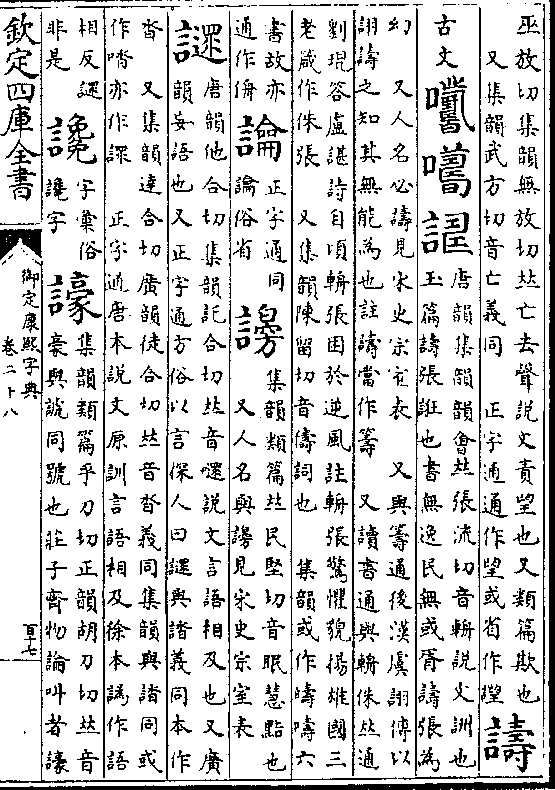 巫放切集韻無放切𠀤亡去聲說文責望也又類篇欺也
又集韻武方切音亡義同 正字通通作望或省作
譸
古文
唐韻集韻韻會𠀤張流切音輈說文詶也
玉篇譸張誑也書無逸民無或胥譸張為
幻 又人名必譸見宋史宗室表 又與籌通後漢虞詡傳以
詡譸之知其無能為也註譸當作籌 又讀書通與輈侏𠀤通
劉琨答盧諶詩自頃輈張困於逆風註輈張驚懼貌揚雄國三
老箴作侏張 又集韻陳留切音儔詞也 集韻或作嚋嚋六
書故亦
通作侜
正字通同
論俗省
䜁
集韻類篇𠀤民堅切音眠慧黠也
又人名與䜁見宋史宗室表
𧮑
唐韻他合切集韻託合切𠀤音 說文言語相及也又廣
韻妄語也又正字通方俗以言保人曰𧮑與誻義同本作
沓 又集韻達合切廣韻徒合切𠀤音沓義同集韻與誻同或
作嗒亦作 正字通唐本說文原訓言語相及徐本譌作語
相反𧮑
非是
䜛
字彙俗
讒字
譹
集韻類篇乎刀切正韻胡刀切𠀤音
豪與號同號也莊子齊物論叫者譹
欽定四庫全書
御定康熙字典
卷二十八
百七